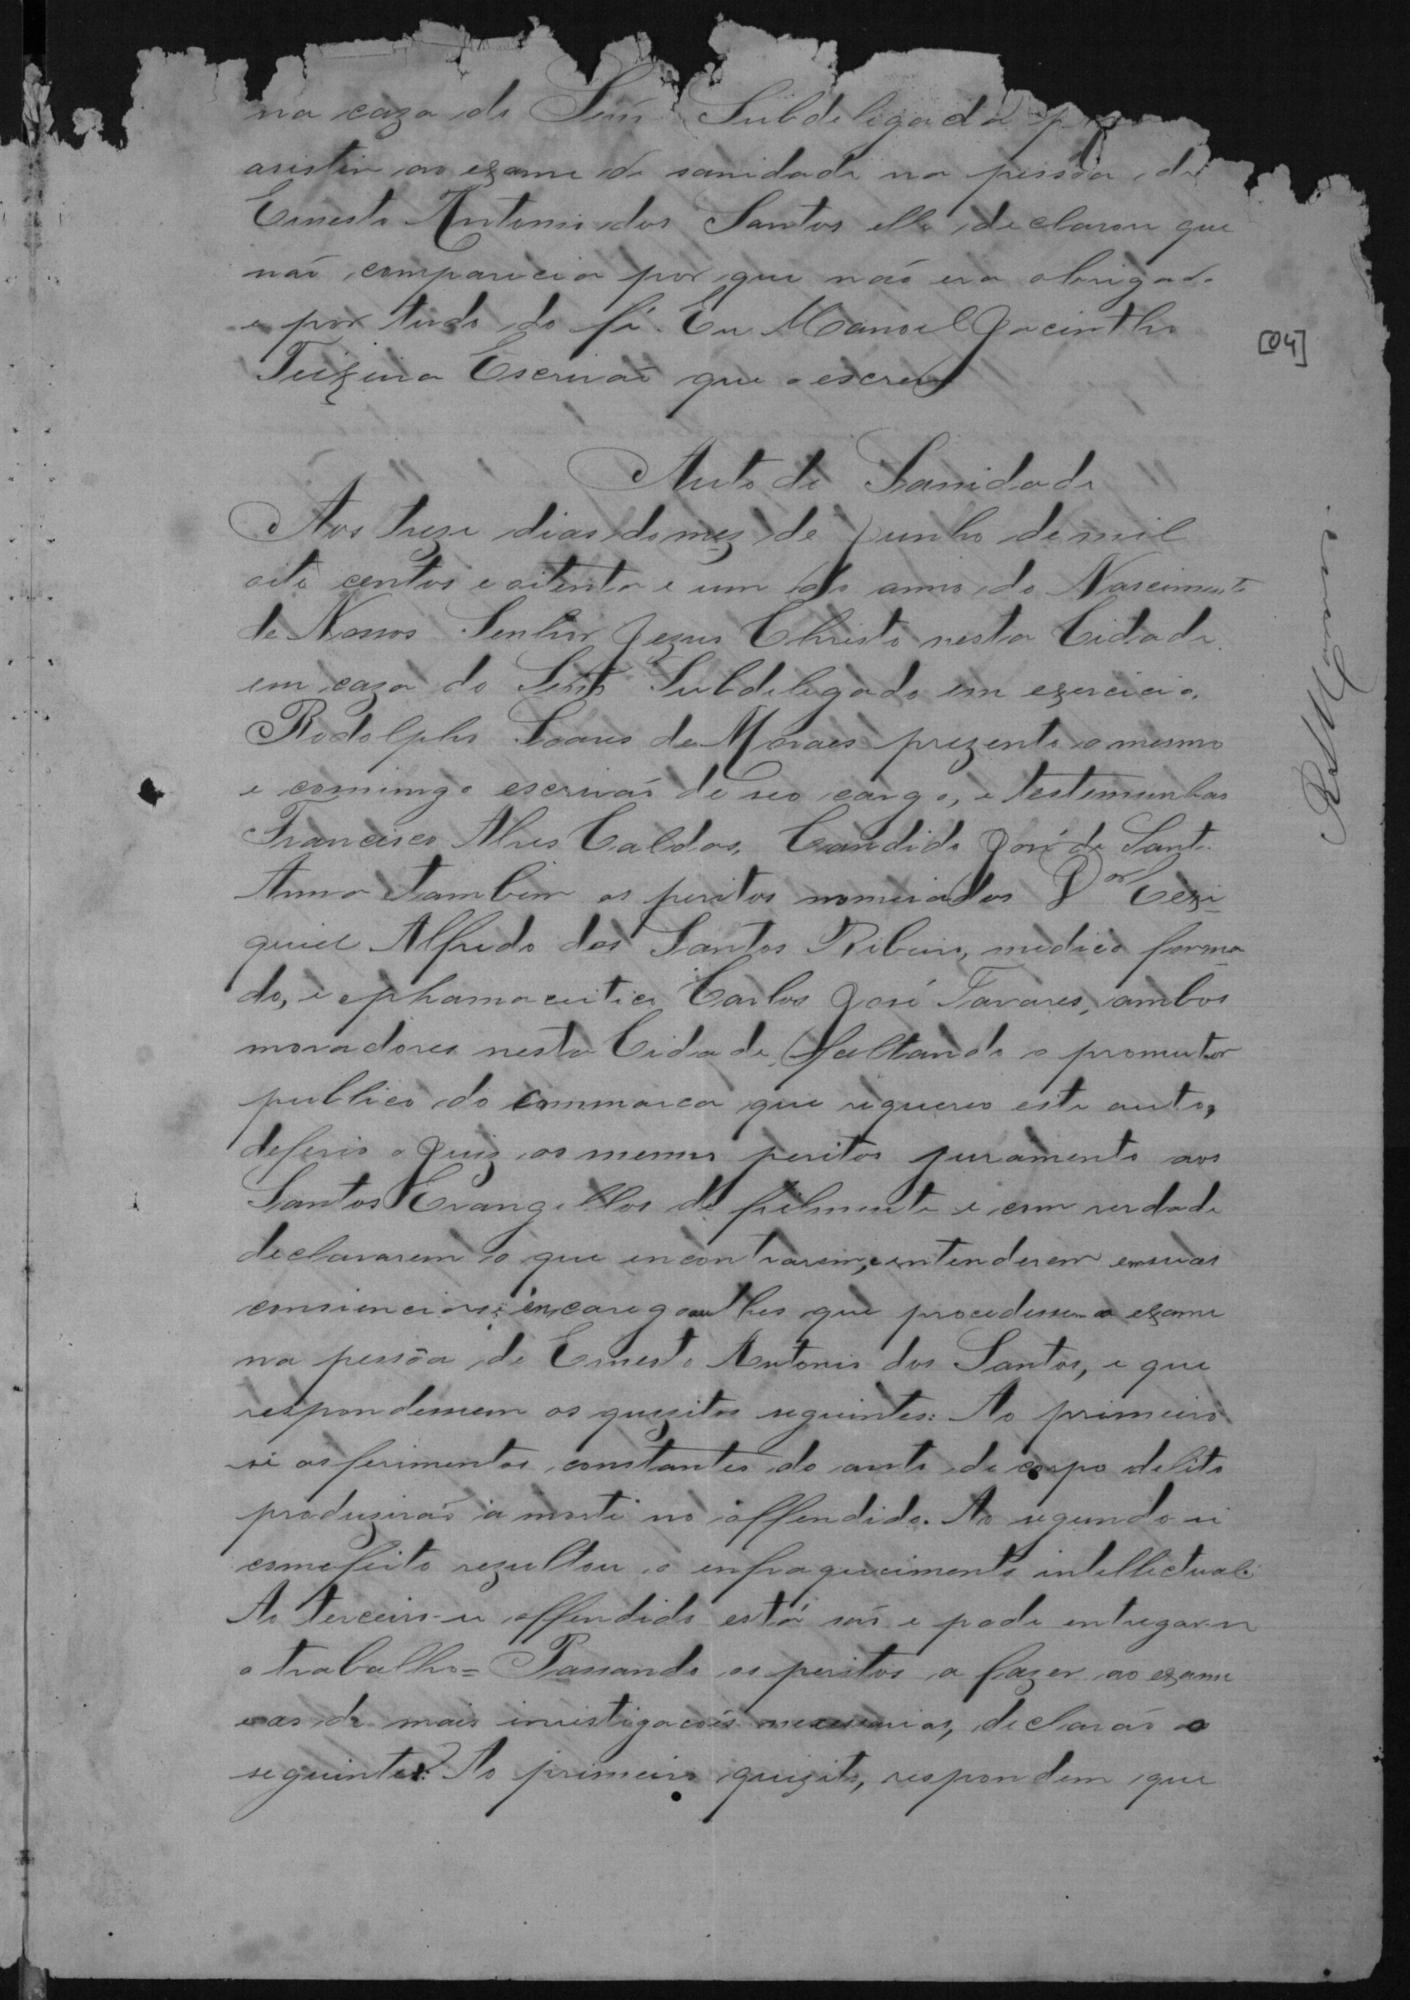 na caza do Senr. Subdelegado
asistir ao ezame de sanidade na pessôa de
Ernesto Antonio dos Santos elle declarou que
não comparecia por que não era obrigado
e por tudo do fé. Eu Manoel Jacintho
Teixeira Escrivão que o escrevy
[04]
Auto de Sanidade
Aos treze dias do mez de Junho de mil
oito centos e oitenta e um do anno do Nascimento
de Nossos Senhor Jezus Christo nesta Cidade
em caza do Senr. Subdelegado em ezercicio.
Rodolpho Soares de Moraes prezente o mesmo
e comimgo escrivão de seo cargo, e testemunhas
Francisco Alves Caldas, Candido José de Sant-
Anna tambem os peritos nomeiados Dor. Ceze-
quiel Alfredo dos Santos Ribeiro, medico forma-
do, e o phamaceutico Carlos José Tavares, ambos
moradores nesta Cidade, faltando o promutor
publico da commarca que requereo este auto,
deferio o Juiz os mesmos peritos juramento aos
Santos Evangellos de fielmente e com verdade
declararem o que encontrarem, e entenderem em suas
consiencias; e encaregou lhes que procedessem o ezame
na pessôa de Ernesto Antonio dos Santos, e que
respondessem os quezitos seguintes: Ao primeiro
si os ferimentos constantes do auto de corpo delito
produzirão a morte no offendido. Ao segundo si
com efeito rezultou o enfraquecimento intellectual:
Ao terceiro si offendido está são e pode entregar-se
o trabalho = Passando os peritos a fazer ao ezame
e as de mais investigacois necessarias, declarão o
seguinte: Ao primeiro quizito, respondem que
R. S. Moraes